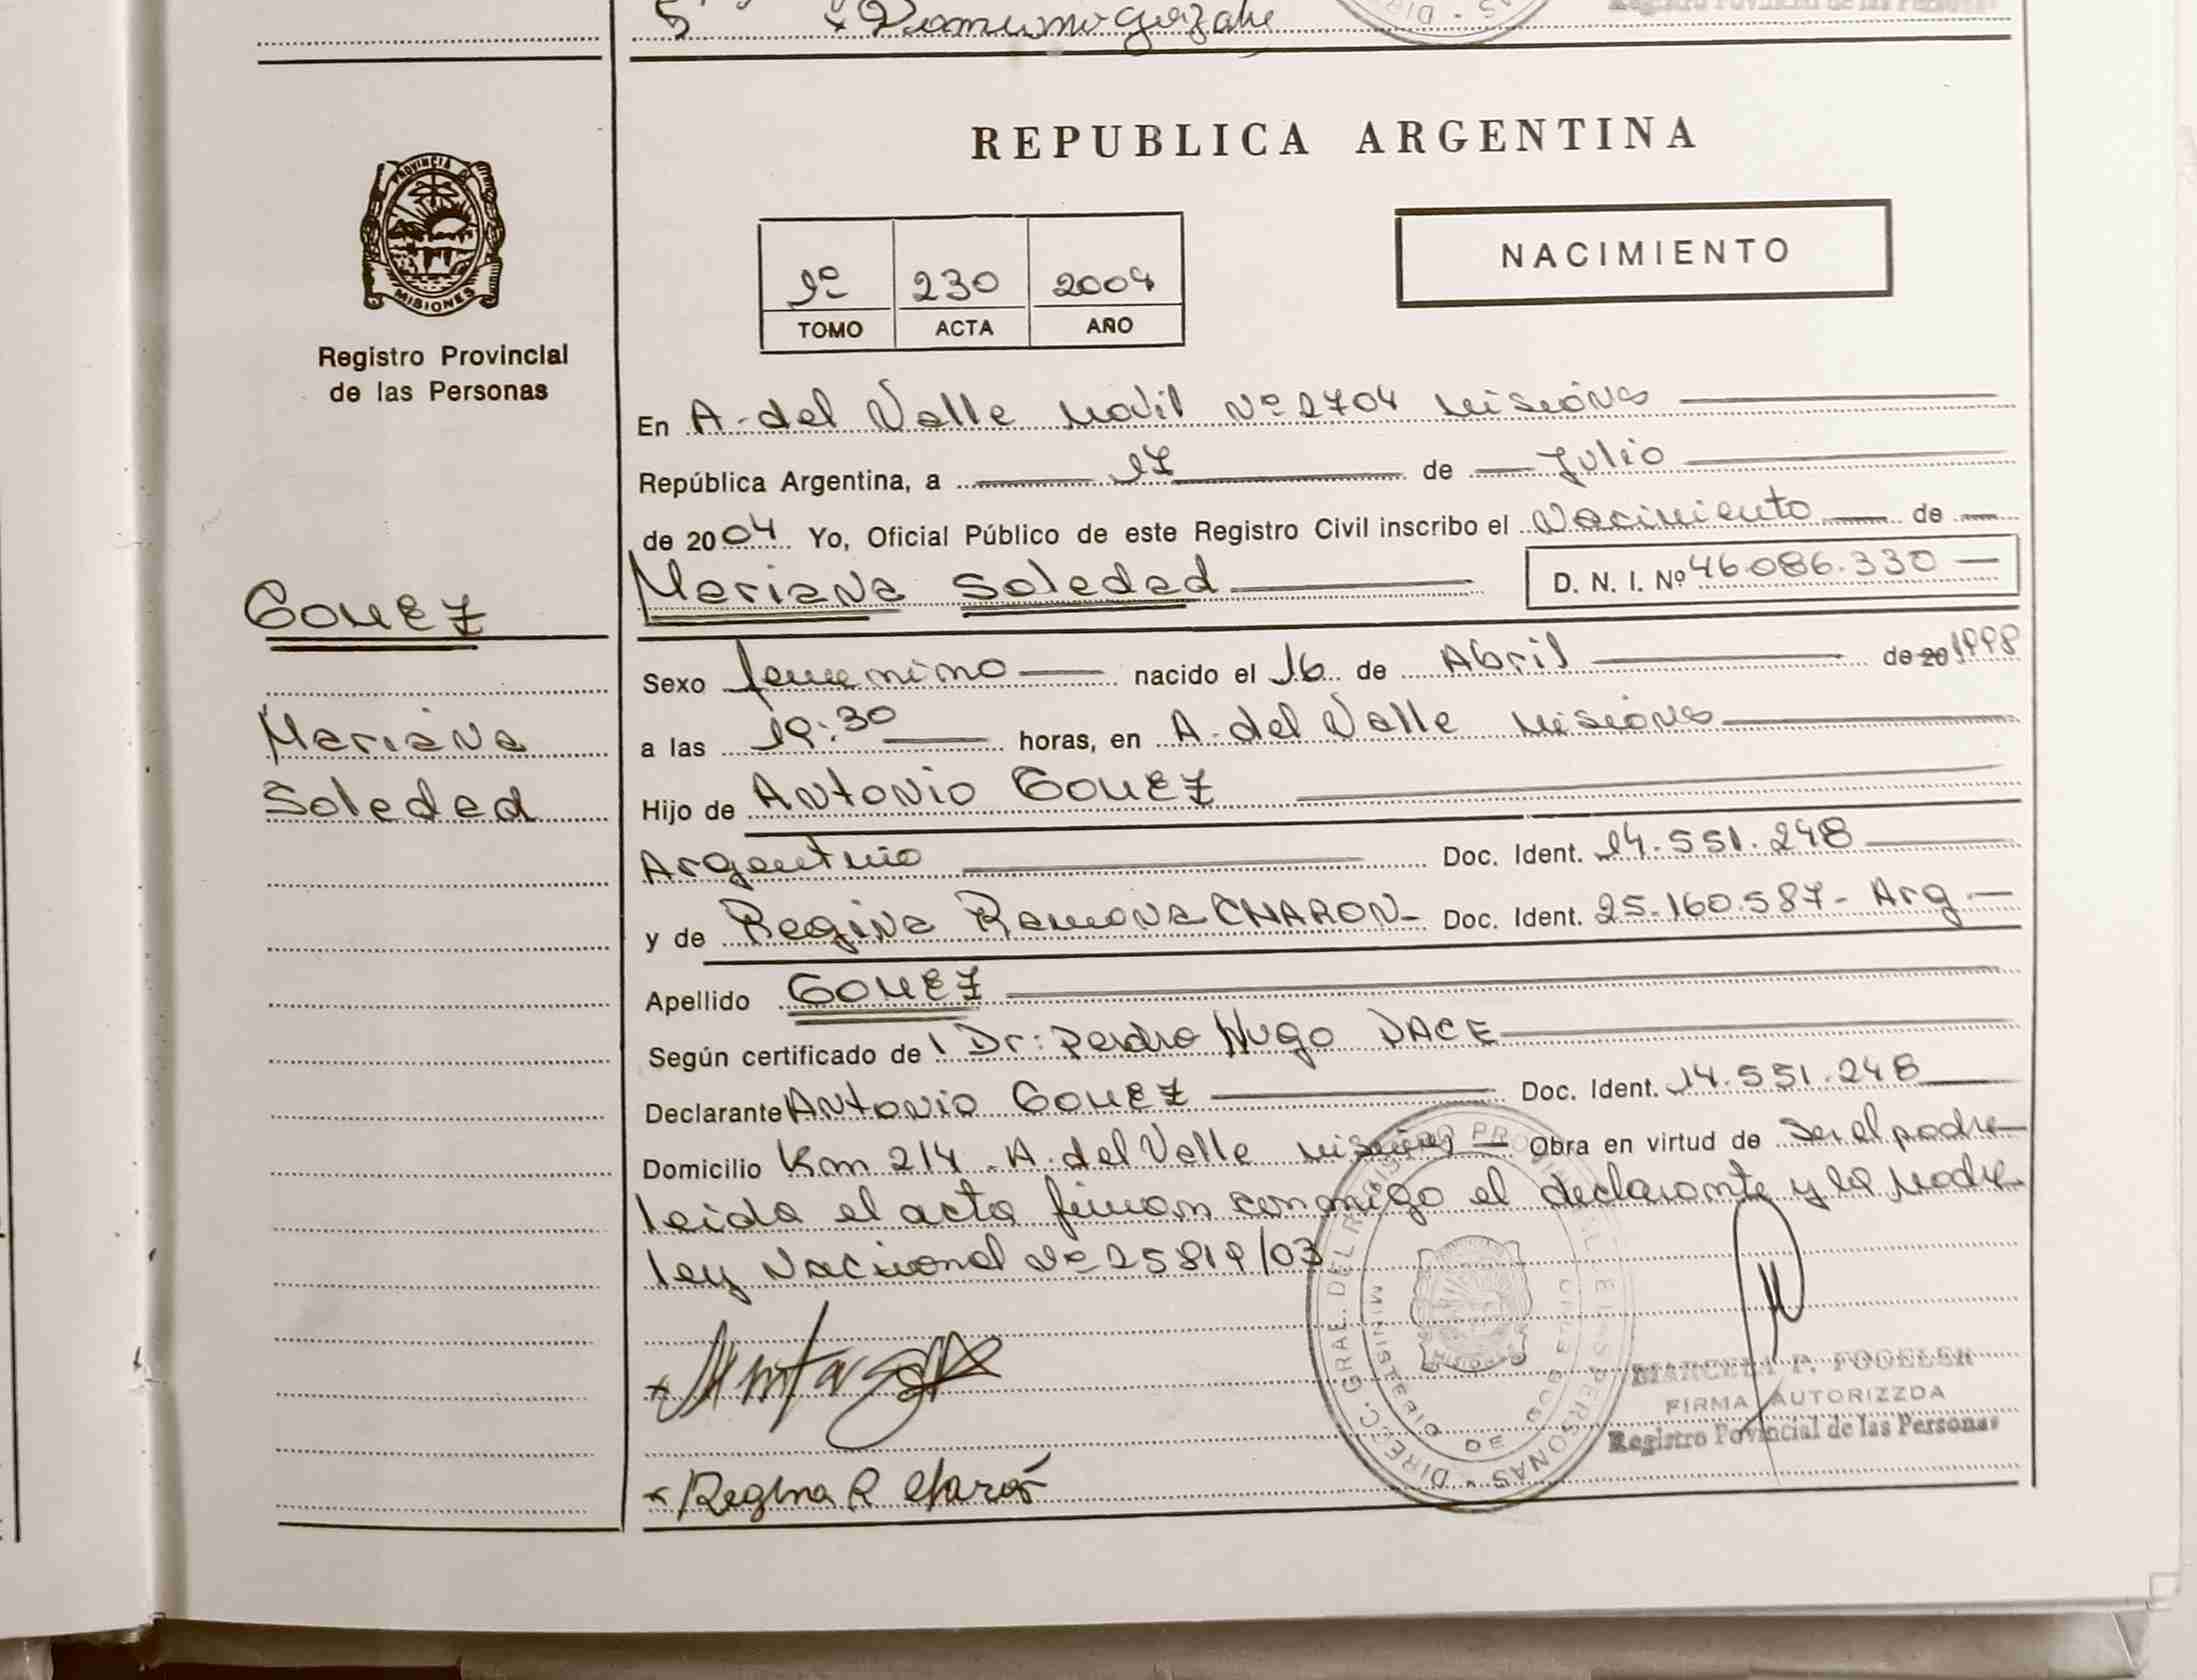 PROVINCIA DE
MISIONES
Registro Provincial
de las Personas
REPUBLICA ARGENTINA
1º 230 2004
TOMO ACTA AÑO
NACIMIENTO
En A. del Valle Movil Nº 2704 Misiones
República Argentina, a 17 de Julio
de 2004 Yo, Oficial Público de este Registro Civil inscribo el Nacimiento de
Mariana Soledad D. N. I. Nº 46.086.330
GOMEZ
Mariana
Soledad
Sexo femenino nacido el 16 de Abril de 20 1998
a las 19:30 horas, en A. del Valle Misiones
Hijo de Antonio GOMEZ
Argentino Doc. Ident. 14.551.248
y de Regina Ramona CHARON- Doc. Ident. 25.160.587- Arg.
Apellido GOMEZ
Según certificado de Dr: Pedro Hugo DACE
Declarante Antonio GOMEZ Doc. Ident. 14.551.248
Domicilio Km 214. A. del Valle Misiones Obra en virtud de Ser el padre
leida el acta firman conmigo el declarante y la Madre
ley Nacional Nº 25819/03
DIREC. GRAL. DEL REGISTRO PROVINCIAL DE LAS PERSONAS
MINISTERIO DE GOBIERNO
FIRMA AUTORIZZDA
Registro Provincial de las Personas
x Regina R Charón